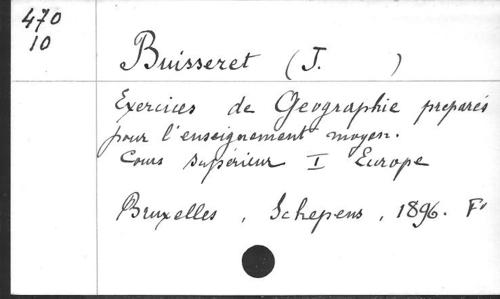 470
10
Buisseret (J. )
Exercices de Geographie preparés
pour l'enseignement moyen.
Cours supérieur I Europe
Bruxelles, Schepens, 1896. F'